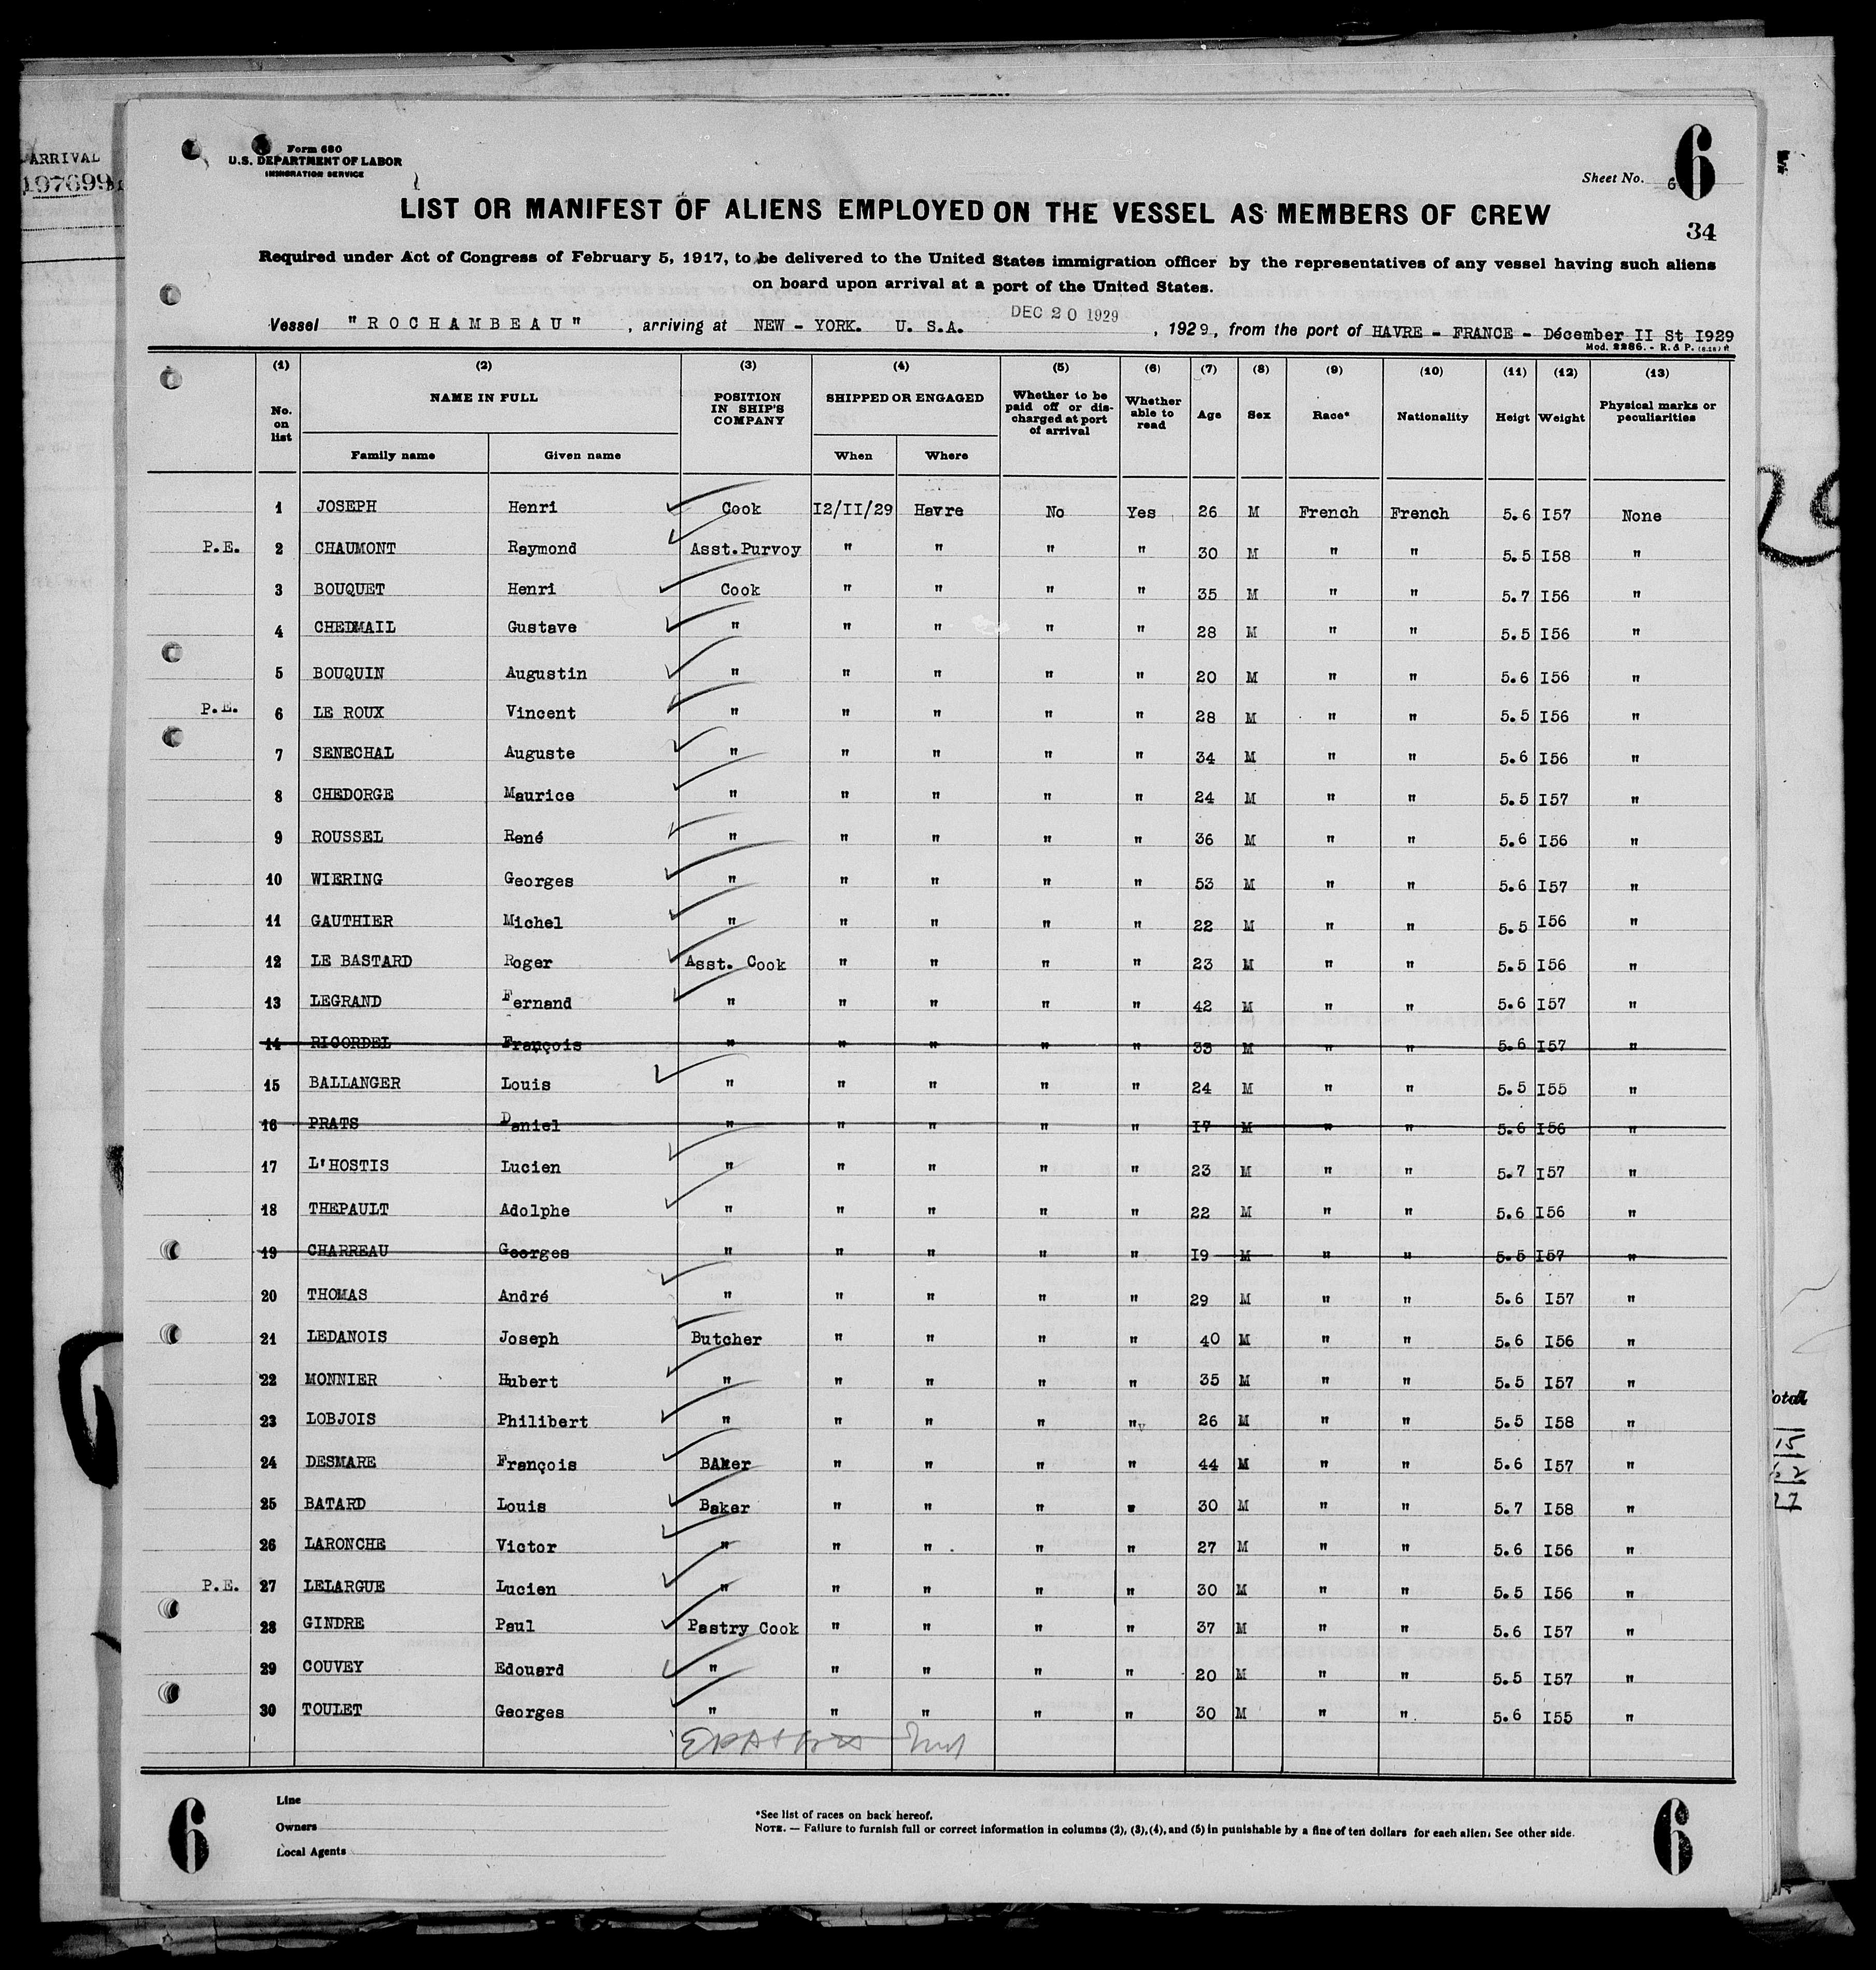 ARRIVAL
197699
Form 680
U.S. DEPARTMENT OF LABOR
IMMIGRATION SERVICE
Sheet No. 6
6
34
LIST OR MANIFEST OF ALIENS EMPLOYED ON THE VESSEL AS MEMBERS OF CREW
Required under Act of Congress of February 5, 1917, to be delivered to the United States immigration officer by the representatives of any vessel having such aliens
on board upon arrival at a port of the United States.
Vessel "ROCHAMBEAU", arriving at NEW - YORK. U. S.A. DEC 20 1929, 1929, from the port of HAVRE - FRANCE - Décember II St I929
Mod. 2286. - R. & P.
(1) (2) (3) (4) (5) (6) (7) (8) (9) (10) (11) (12) (13)
No. on list NAME IN FULL Family name Given name POSITION IN SHIP'S COMPANY SHIPPED OR ENGAGED When Where Whether to be paid off or discharged at port of arrival Whether able to read Age Sex Race* Nationality Heigt Weight Physical marks or peculiarities
1 JOSEPH Henri Cook I2/II/29 Havre No Yes 26 M French French 5.6 I57 None
P.E. 2 CHAUMONT Raymond Asst.Purvoy " " " " 30 M " " 5.5 I58 "
3 BOUQUET Henri Cook " " " " 35 M " " 5.7 I56 "
4 CHEDMAIL Gustave " " " " " 28 M " " 5.5 I56 "
5 BOUQUIN Augustin " " " " " 20 M " " 5.6 I56 "
P.E. 6 LE ROUX Vincent " " " " " 28 M " " 5.5 I56 "
7 SENECHAL Auguste " " " " " 34 M " " 5.6 I56 "
8 CHEDORGE Maurice " " " " " 24 M " " 5.5 I57 "
9 ROUSSEL René " " " " " 36 M " " 5.6 I56 "
10 WIERING Georges " " " " " 53 M " " 5.6 I57 "
11 GAUTHIER Michel " " " " " 22 M " " 5.5 I56 "
12 LE BASTARD Roger Asst. Cook " " " " 23 M " " 5.5 I56 "
13 LEGRAND Fernand " " " " " 42 M " " 5.6 I57 "
14 RICORDEL François " " " " " 33 M " " 5.6 I57 "
15 BALLANGER Louis " " " " " 24 M " " 5.5 I55 "
16 PRATS Daniel " " " " " I7 M " " 5.6 I56 "
17 L'HOSTIS Lucien " " " " " 23 M " " 5.7 I57 "
18 THEPAULT Adolphe " " " " " 22 M " " 5.6 I56 "
19 CHARREAU Georges " " " " " I9 M " " 5.5 I57 "
20 THOMAS André " " " " " 29 M " " 5.6 I57 "
21 LEDANOIS Joseph Butcher " " " " 40 M " " 5.6 I56 "
22 MONNIER Hubert " " " " " 35 M " " 5.5 I57 "
23 LOBJOIS Philibert " " " " " 26 M " " 5.5 I58 "
24 DESMARE François BAker " " " " 44 M " " 5.6 I57 "
25 BATARD Louis Baker " " " " 30 M " " 5.7 I58 "
26 LARONCHE Victor " " " " " 27 M " " 5.6 I56 "
P.E. 27 LELARGUE Lucien " " " " " 30 M " " 5.5 I56 "
28 GINDRE Paul Pastry Cook " " " " 37 M " " 5.6 I57 "
29 COUVEY Edouard " " " " " 20 M " " 5.5 I57 "
30 TOULET Georges " " " " " 30 M " " 5.6 I55 "
Line
Owners
Local Agents
*See list of races on back hereof.
NOTE. — Failure to furnish full or correct information in columns (2), (3), (4), and (5) in punishable by a fine of ten dollars for each alien. See other side.
6
6